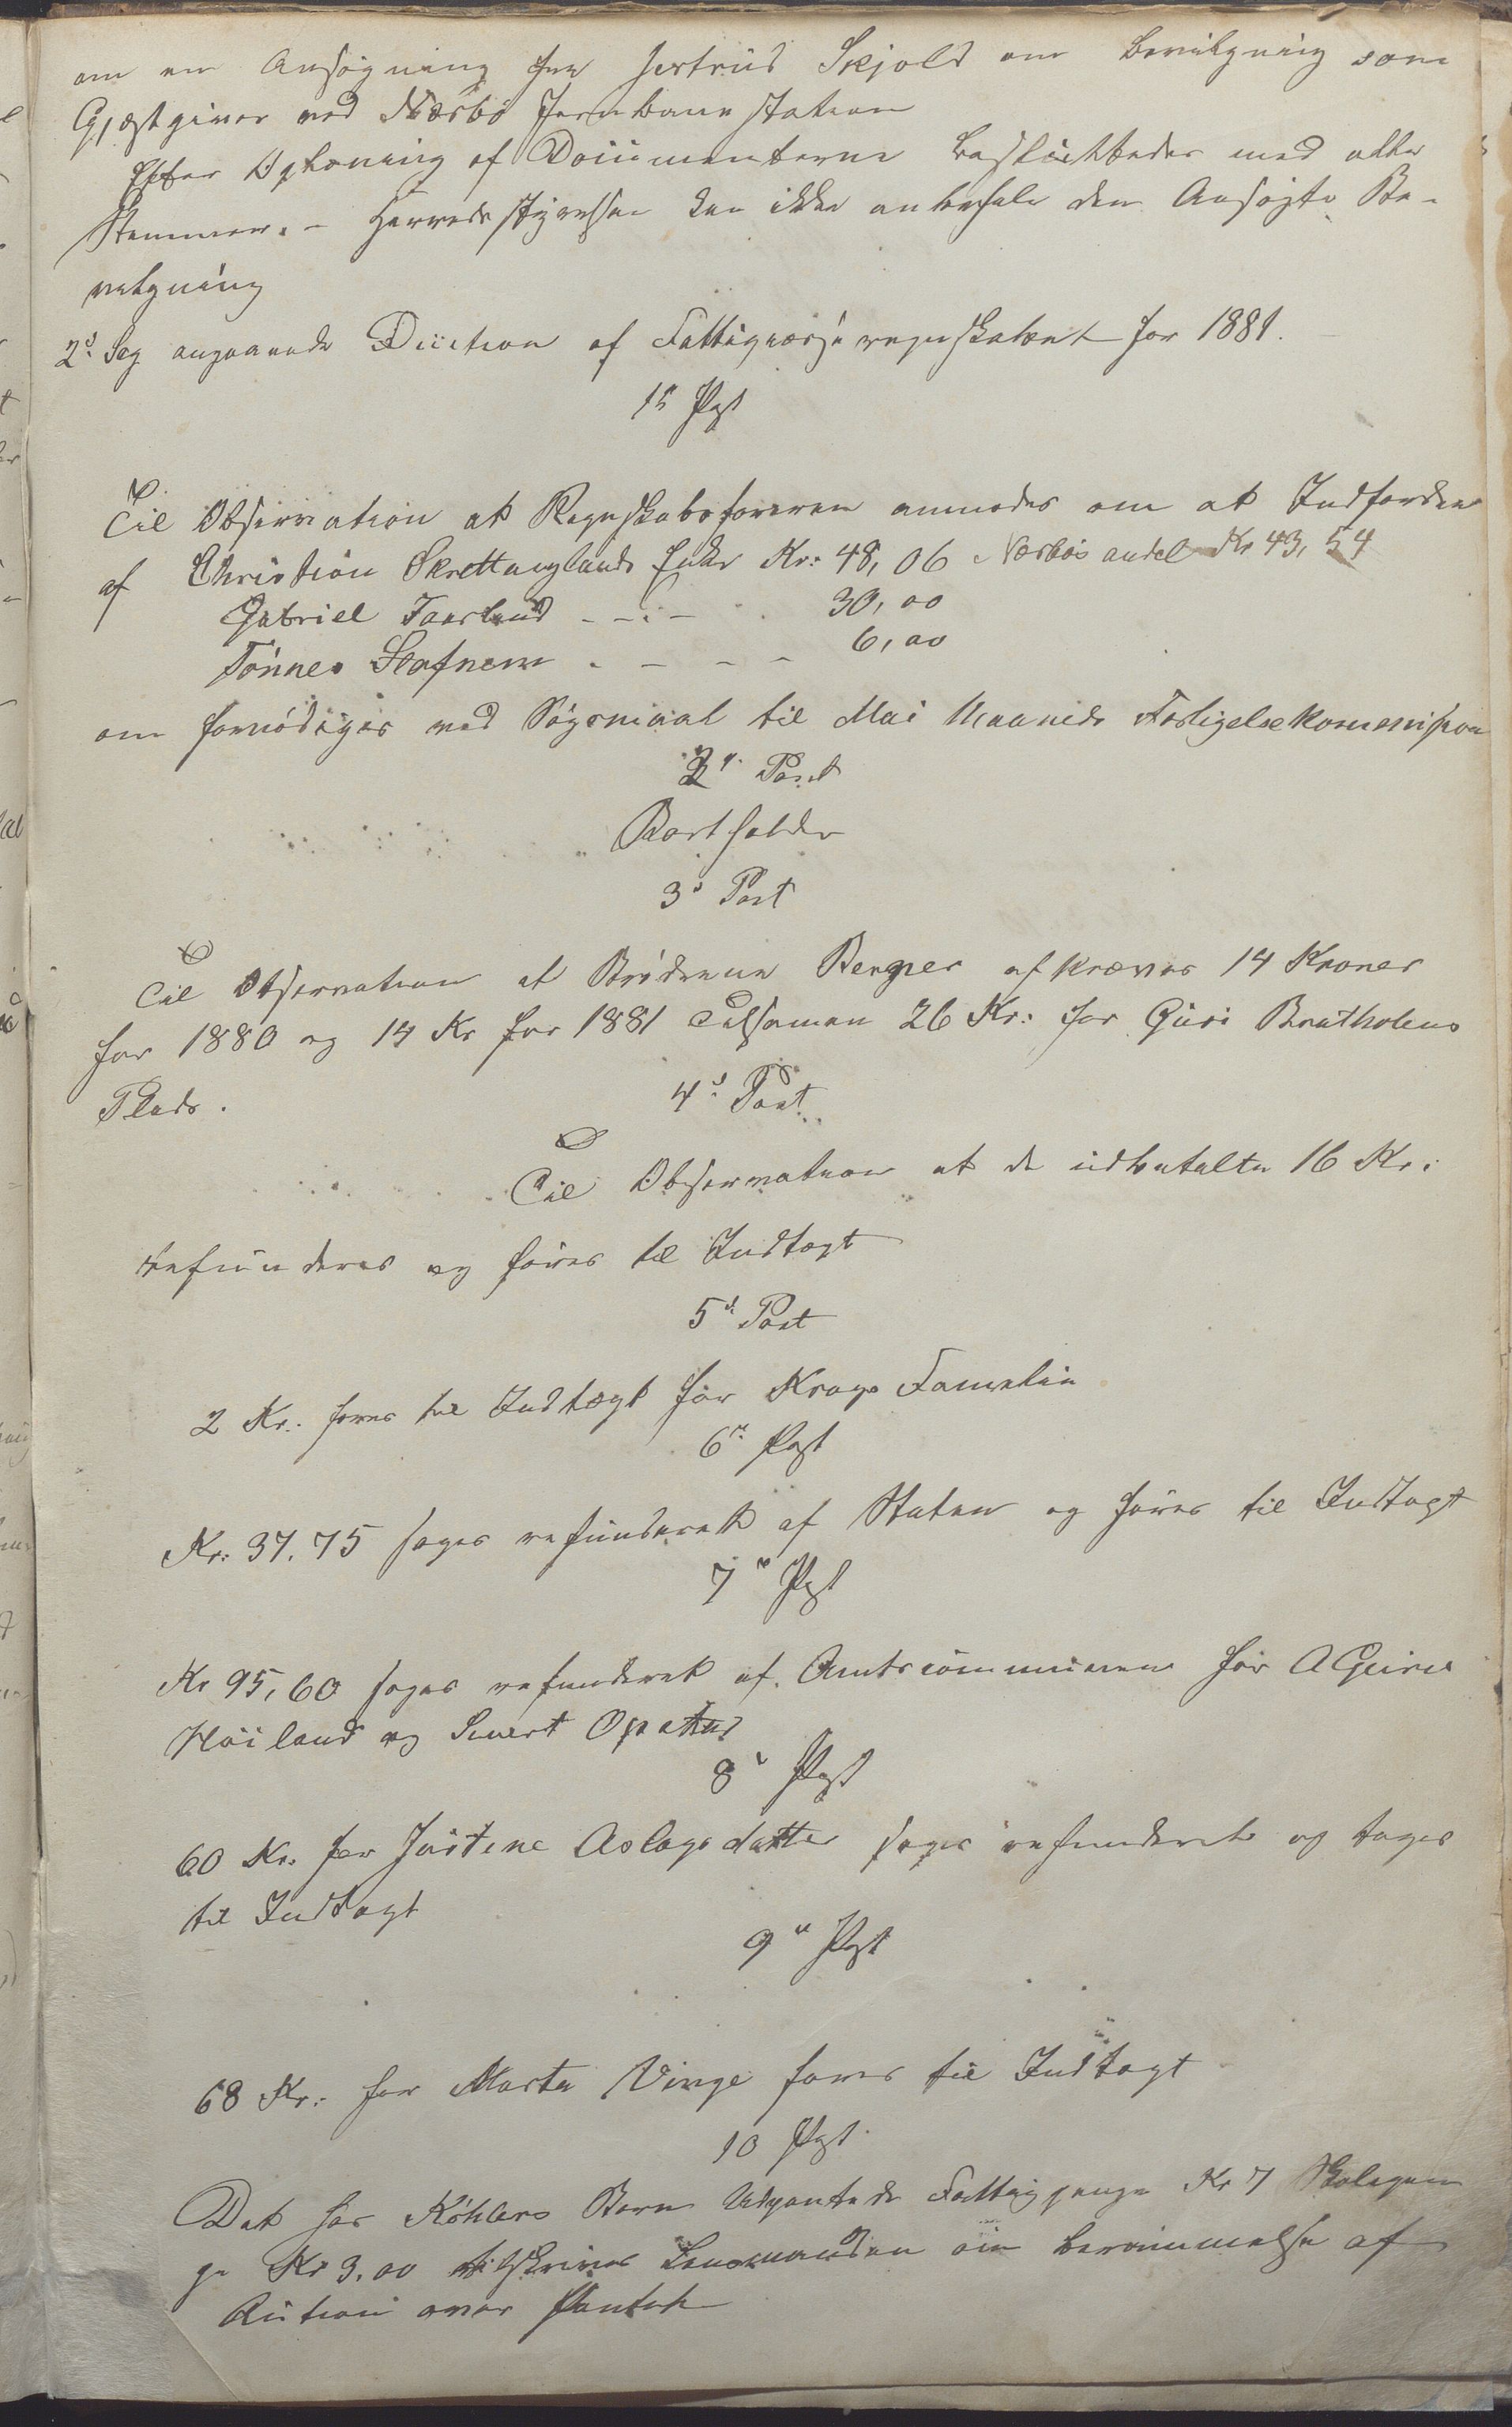 om en Ansøgning fra Jertrud Skjold om Bevilgning som
Gjæstgiver ved Nærbø Jernbanestation
Efter Oplæsning af Documenterne besluttedes med alle
Stemmer. - Herredsstyrelsen kan ikke anbefale den Ansøgte Be-
vilgning
2d Sag angaaende Desition af Fattigkasseregnskabet for 1881.
1ste Post
Til Observation at Regnskabsføreren anmodes om at Indfordre
af Christian Skrettinglands Enke Kr: 48,06 Nærbøs andel Kr 43,54
Gabriel Taarland - - - 30,00
Tønnes Stafnem - - - 6,00
om fornødiges ved Søgsmaal til Mai Maaneds Forligelseskommission
2d Post
Bortfalder
3d Post
Til Observation at Brødrene Berge afkræves 14 Kroner
for 1880 og 14 Kr for 1881 Tilsammen 26 Kr: for Guri Bratholens
Plads.
4d Post
Til Observation at de udbetalte 16 Kr:
refunderes og føres til Indtægt
5d Post
2 Kr. føres til Indtægt for Krags Familie
6te Post
Kr: 37.75 søges refunderet af Staten og føres til Indtægt
7de Post
Kr 95,60 søges refunderet af Amtscommunen for
Høiland og Sivert Opstad
8de Post
60 Kr. for Justine Aslagsdatter søges refunderet og tages
til Indtægt
9de Post
68 Kr: for Marta Vinge føres til Indtægt
10 Post
Det for Köhlers Børn Udpantede Fattigpenge Kr 7 Skolepen
ge Kr 3.00 tilskrives Lensmanden om berammelse af
Aution over Pantet